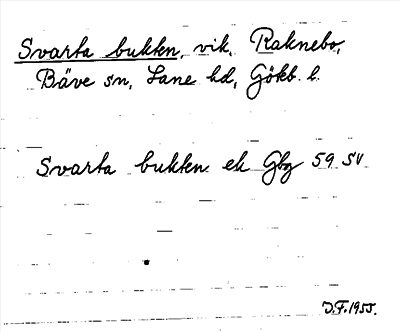 Svarta bukten, vik, Raknebo,
Bäve sn, Lane hd, Gökb. l.
Svarta bukten ek Gbg 59 SV
J.F. 1955.